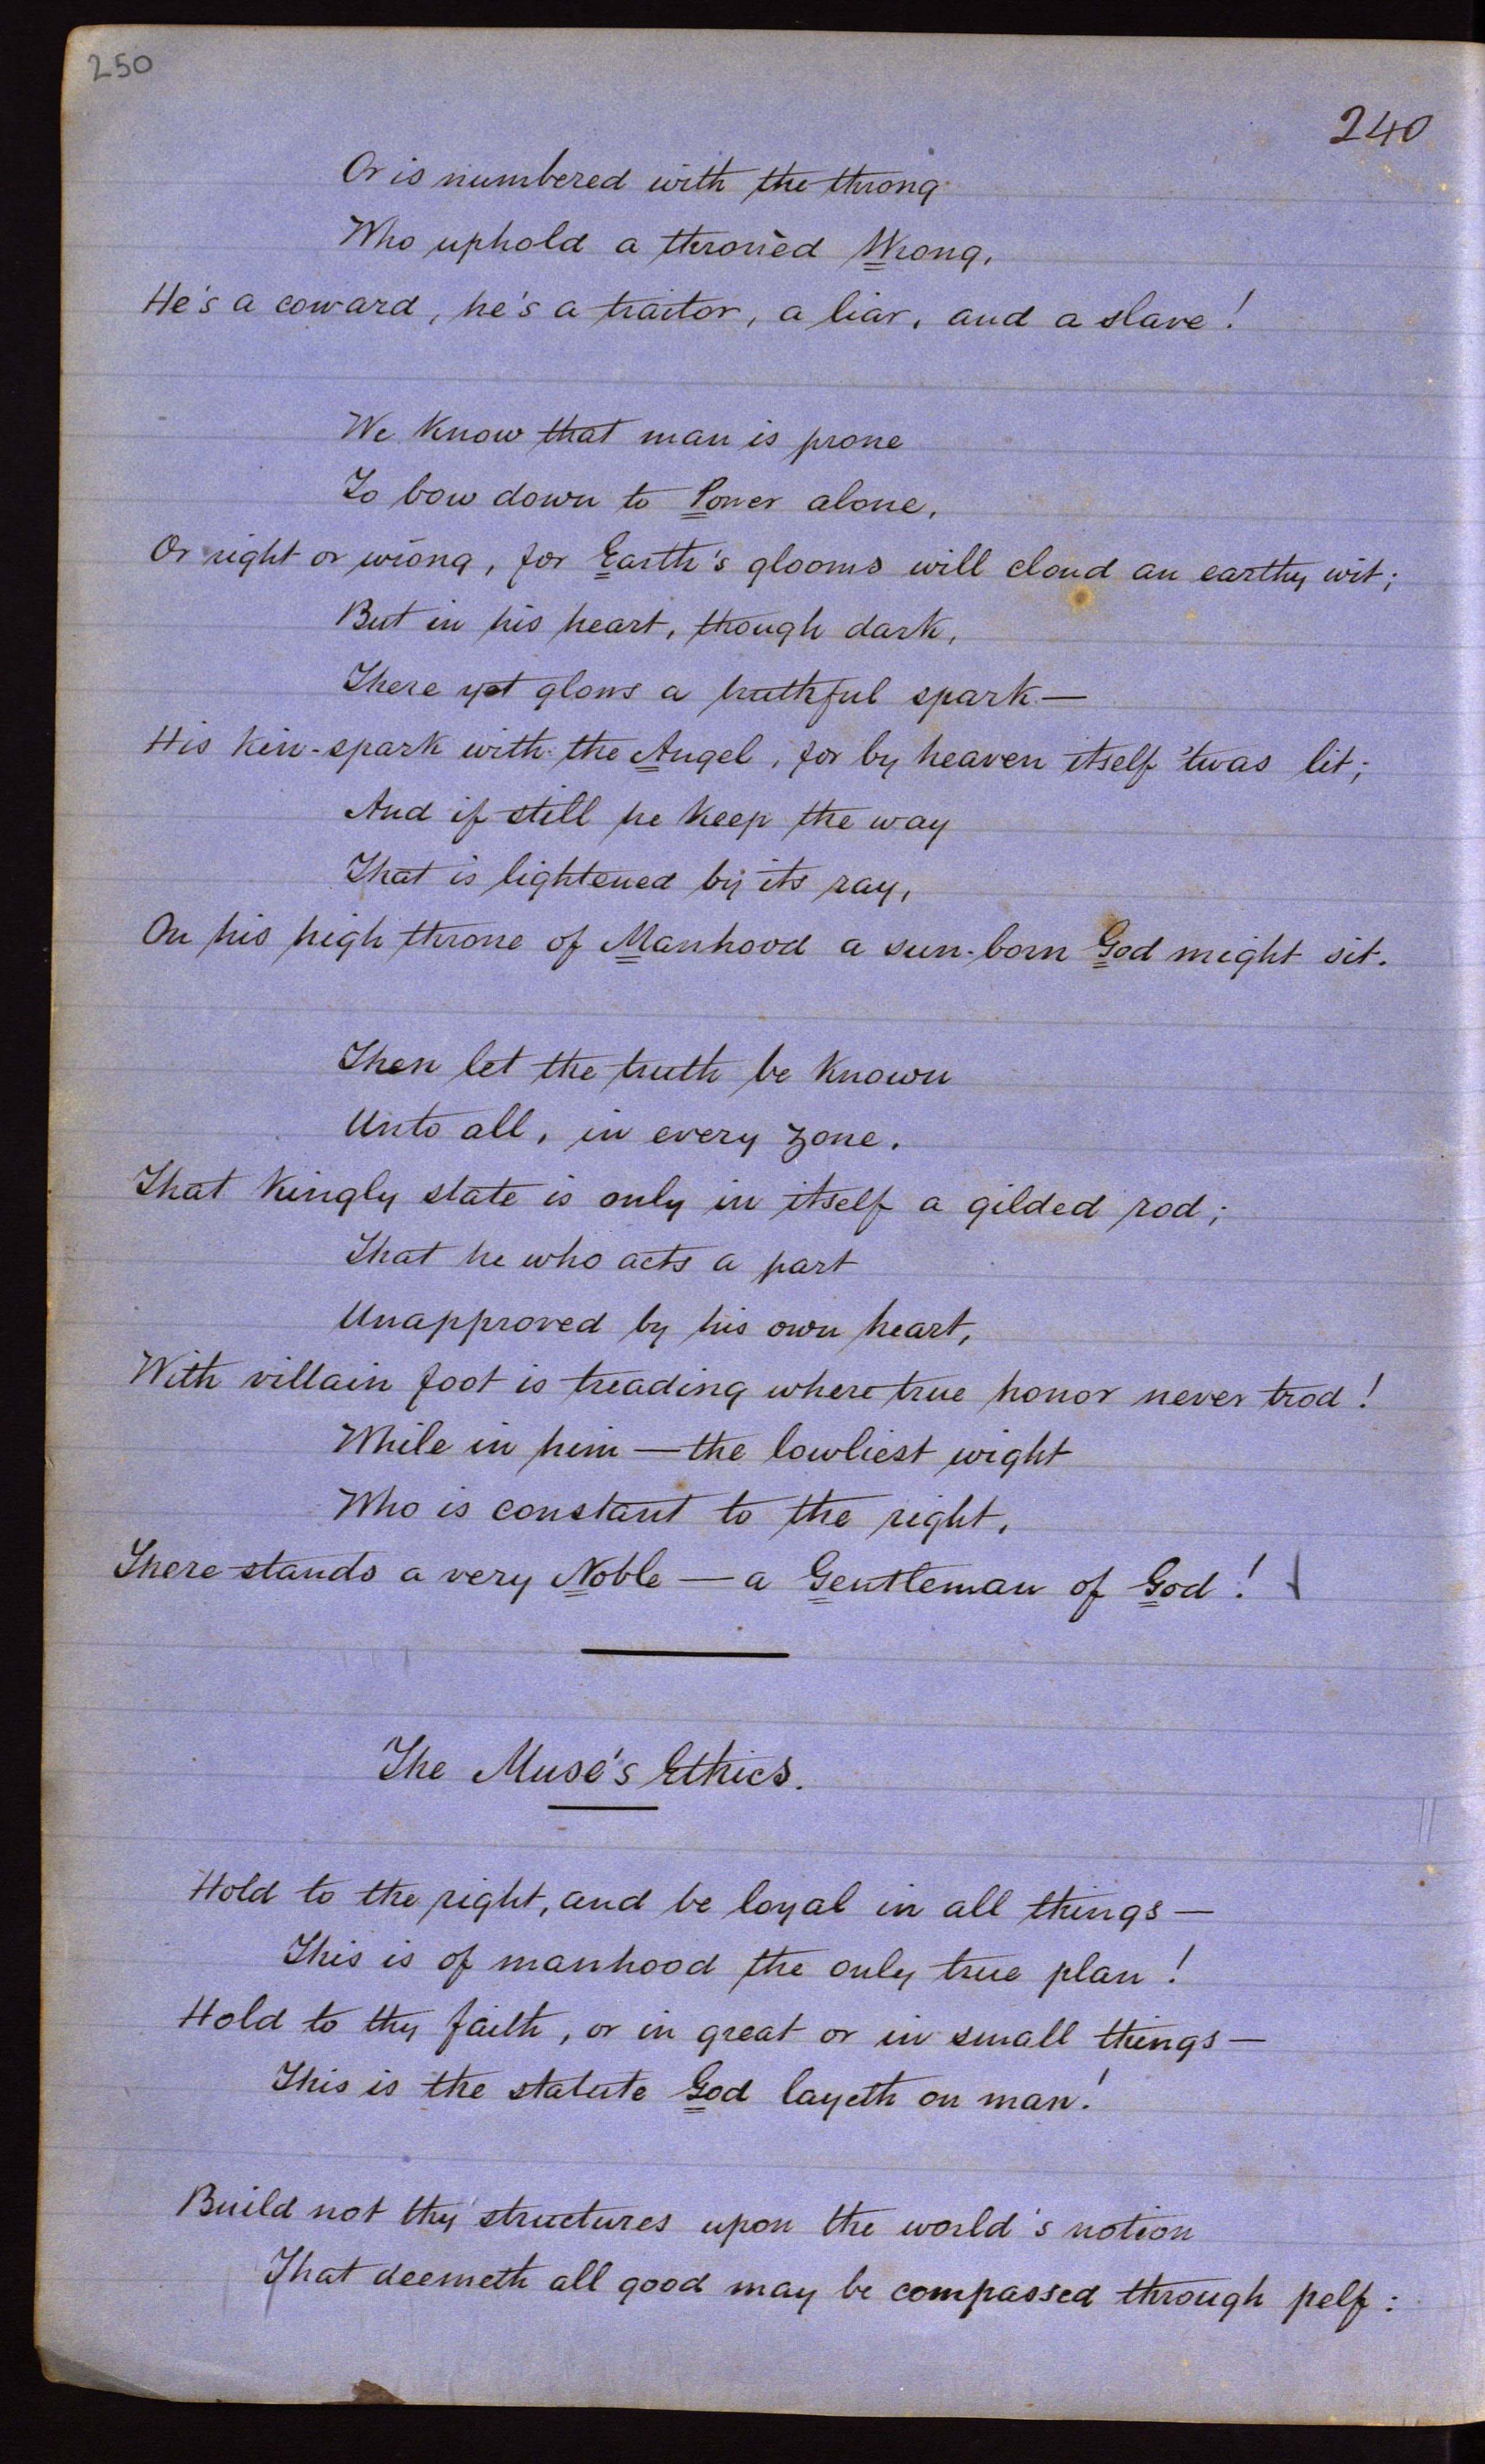 250
240
Or is numbered with the throng
Who uphold a thronèd Wrong,
He's a coward, he's a traitor, a liar, and a slave!
We know that man is prone
To bow down to Power alone,
Or right or wrong, for Earth's glooms will cloud an earthy wit;
But in his heart, though dark,
There yet glows a truthful spark—
His kin-spark with the Angel, for by heaven itself 'twas lit;
And if still he keep the way
That is lightened by its ray,
On his high throne of Manhood a sun-born God might sit.
Then let the truth be known
Unto all, in every zone,
That kingly state is only in itself a gilded rod;
That he who acts a part
Unapproved by his own heart,
With villain foot is treading where true honor never trod!
While in him—the lowliest wight
Who is constant to the right,
There stands a very Noble—a Gentleman of God!
The Muse's Ethics.
Hold to the right, and be loyal in all things—
This is of manhood the only true plan!
Hold to thy faith, or in great or in small things—
This is the statute God layeth on man!
Build not thy structures upon the world's notion
That deemeth all good may be compassed through pelf: